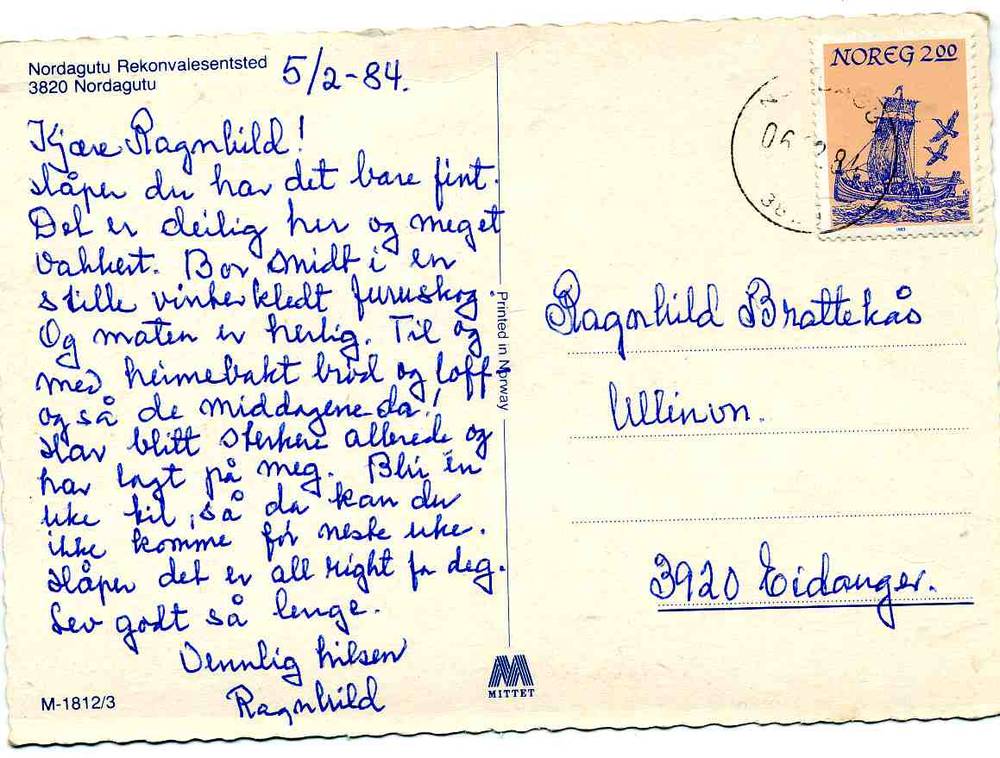 Nordagutu Rekonvalesentsted
3820 Nordagutu
5/2-84.
Kjære Ragnhild!
Håper du har det bare fint.
Det er deilig her og meget
vakkert. Bor midt i en
stille vinterkledt furuskog.
Og maten er herlig. Til og
med heimebakt brød og loff-
og så de middagene da!
Har blitt sterkere allerede og
har lagt på meg. Blir en
uke til, så da kan du
ikke komme før neste uke.
Håper det er all right for deg.
Lev godt så lenge.
Vennlig hilsen
Ragnhild
M-1812/3
Printed in Norway
MITTET
NOREG 2.00
06
Ragnhild Brattekås
Ullinvn.
3920 Eidanger.